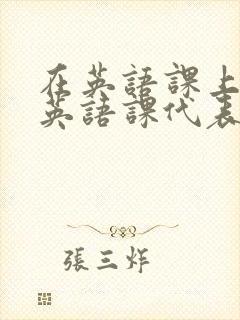 在英語課上
英語課代表
張三炸